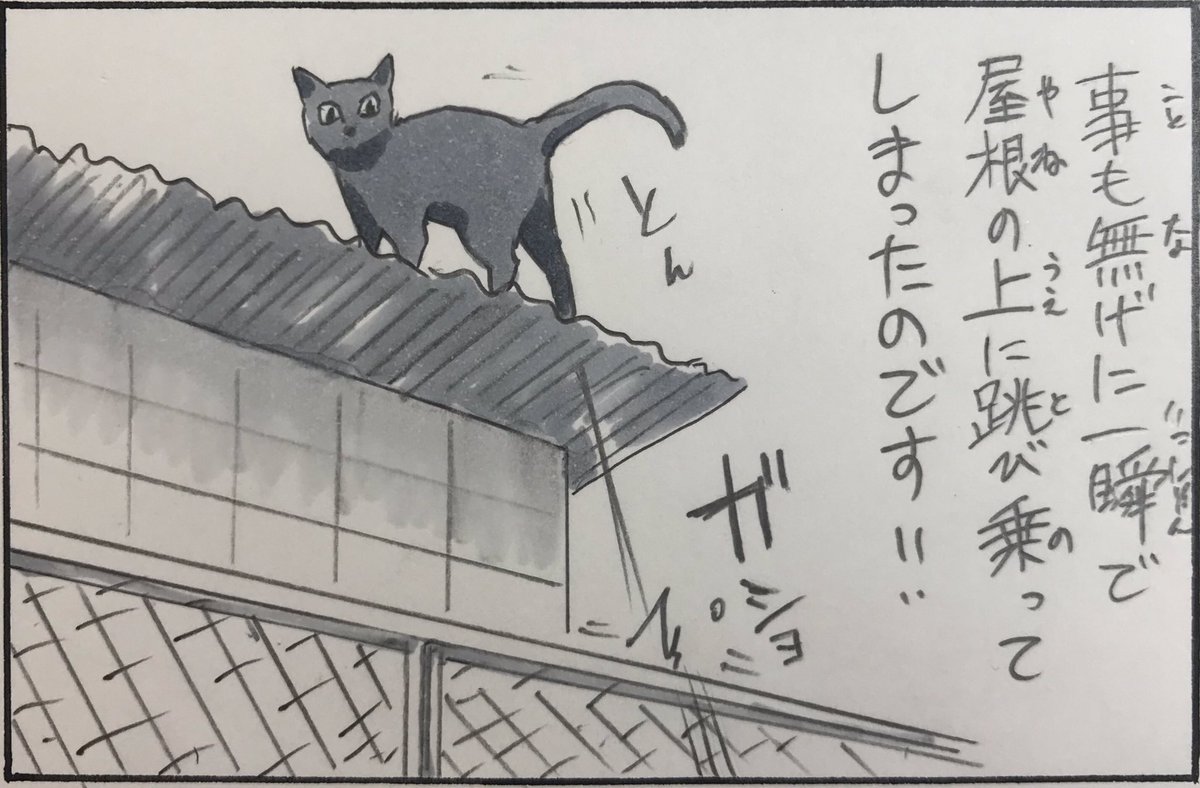 事も無げに一瞬で
屋根の上に跳び乗って
しまったのです!!
とん
ガ
ショ